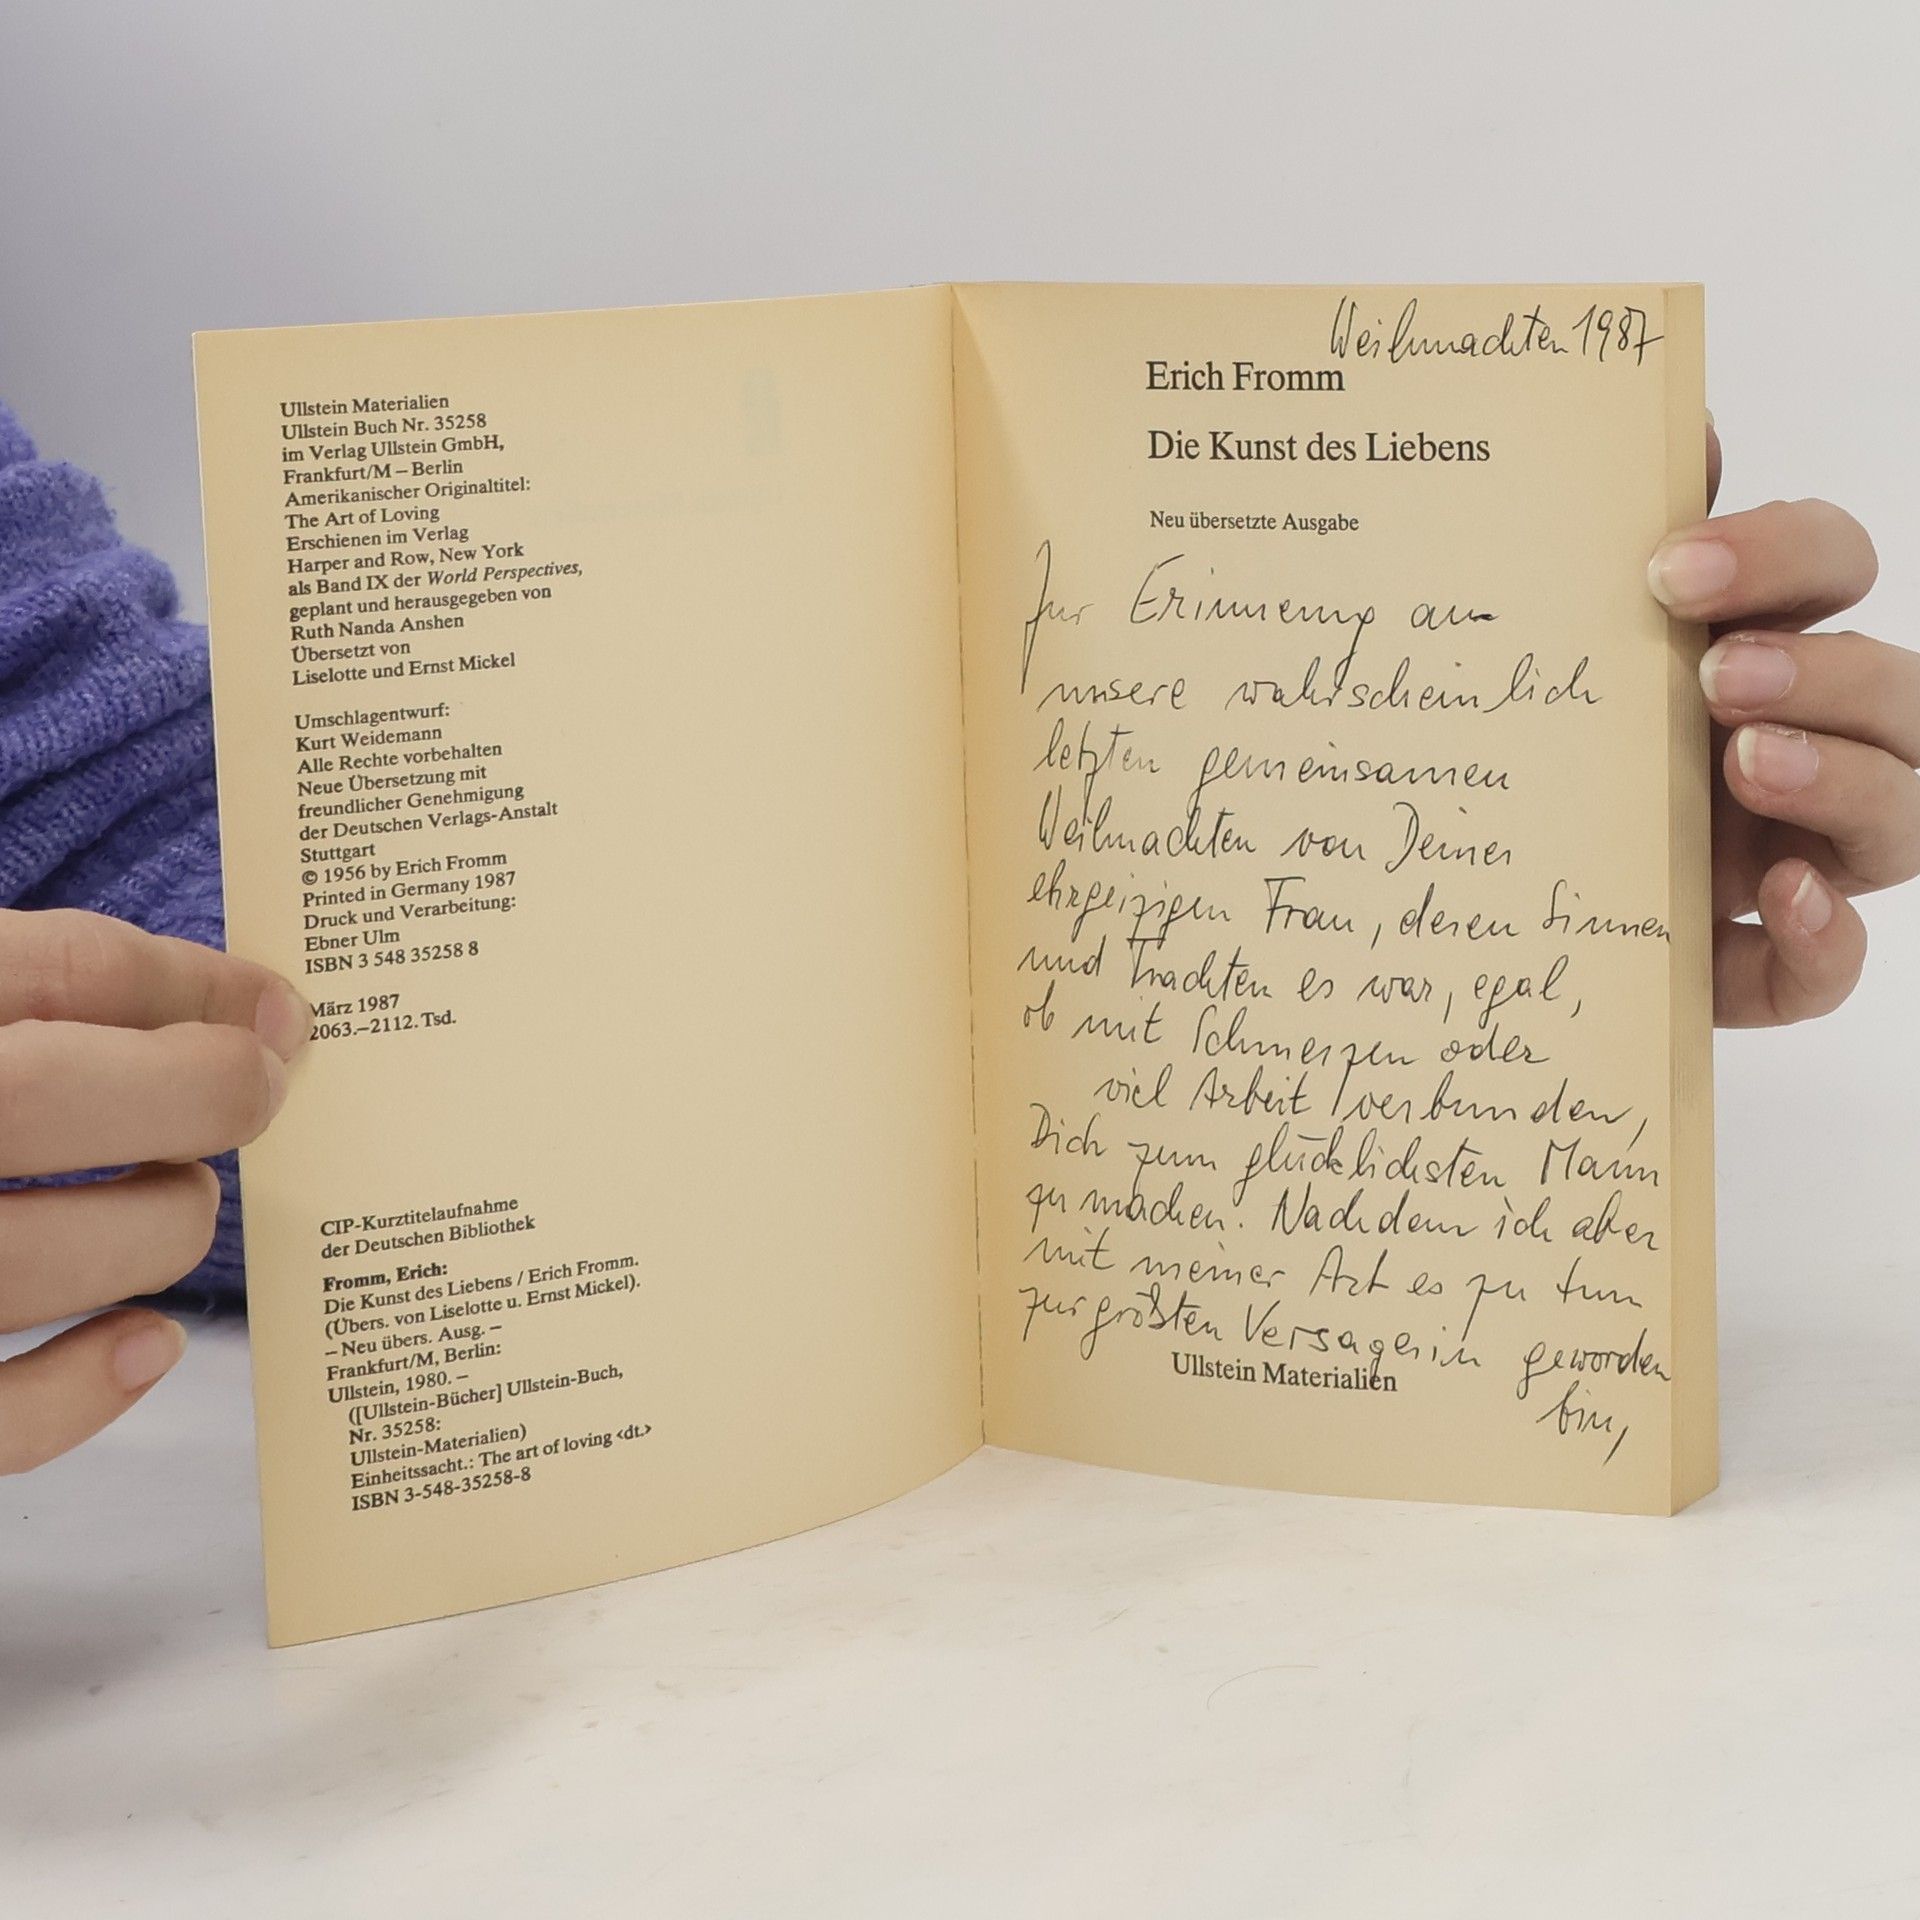 Ullstein Materialien
Ullstein Buch Nr. 35258
im Verlag Ullstein GmbH,
Frankfurt/M – Berlin
Amerikanischer Originaltitel:
The Art of Loving
Erschienen im Verlag
Harper and Row, New York
als Band IX der World Perspectives,
geplant und herausgegeben von
Ruth Nanda Anshen
Übersetzt von
Liselotte und Ernst Mickel
Umschlagentwurf:
Kurt Weidemann
Alle Rechte vorbehalten
Neue Übersetzung mit
freundlicher Genehmigung
der Deutschen Verlags-Anstalt
Stuttgart
© 1956 by Erich Fromm
Printed in Germany 1987
Druck und Verarbeitung:
Ebner Ulm
ISBN 3 548 35258 8
März 1987
2063.–2112. Tsd.
CIP-Kurztitelaufnahme
der Deutschen Bibliothek
Fromm, Erich:
Die Kunst des Liebens / Erich Fromm.
(Übers. von Liselotte u. Ernst Mickel).
– Neu übers. Ausg. –
Frankfurt/M, Berlin:
Ullstein, 1980. –
([Ullstein-Bücher] Ullstein-Buch,
Nr. 35258:
Ullstein-Materialien)
Einheitssacht.: The art of loving ‹dt.›
ISBN 3-548-35258-8
Weihnachten 1987
Erich Fromm
Die Kunst des Liebens
Neu übersetzte Ausgabe
Zur Erinnerung an
unsere wahrscheinlich
letzten gemeinsamen
Weihnachten von Deiner
ehrgeizigen Frau, deren Sinnen
und Trachten es war, egal,
ob mit Schmerzen oder
viel Arbeit verbunden,
Dich zum glücklichsten Mann
zu machen. Nachdem ich aber
mit meiner Art es zu tun
zur größten Versagerin geworden
bin,
Ullstein Materialien